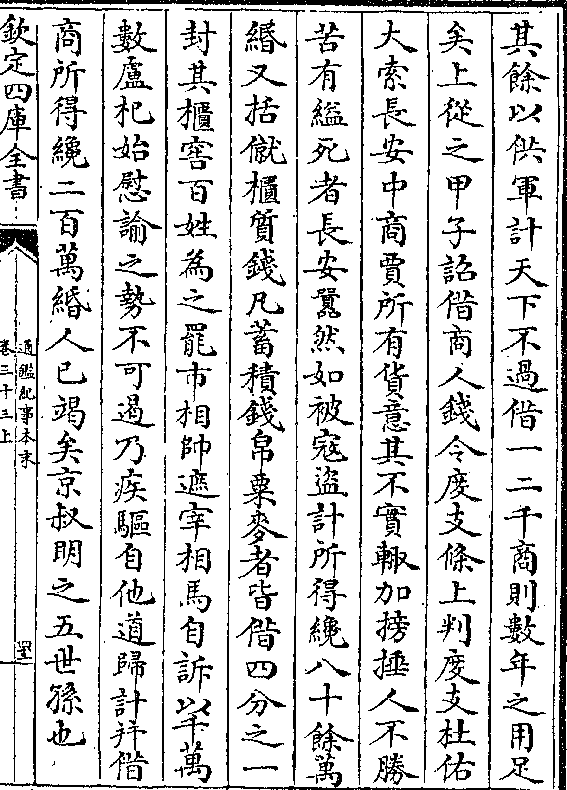 其餘以供軍計天下不過借一二千商則數年之用足
矣上從之甲子詔借商人錢令度支條上判度支杜佑
大索長安中商賈所有貨意其不實輙加搒捶人不勝
苦有縊死者長安囂然如被寇盜計所得纔八十餘萬
緡又括僦櫃質錢凡蓄積錢帛粟麥者皆借四分之一
封其櫃窖百姓為之罷市相帥遮宰相馬自訴以千萬
數盧杞始慰諭之勢不可遏乃疾驅自他道歸計并借
商所得纔二百萬緡人已竭矣京叔明之五世孫也
欽定四庫全書
通鑑紀事本末
卷三十三上